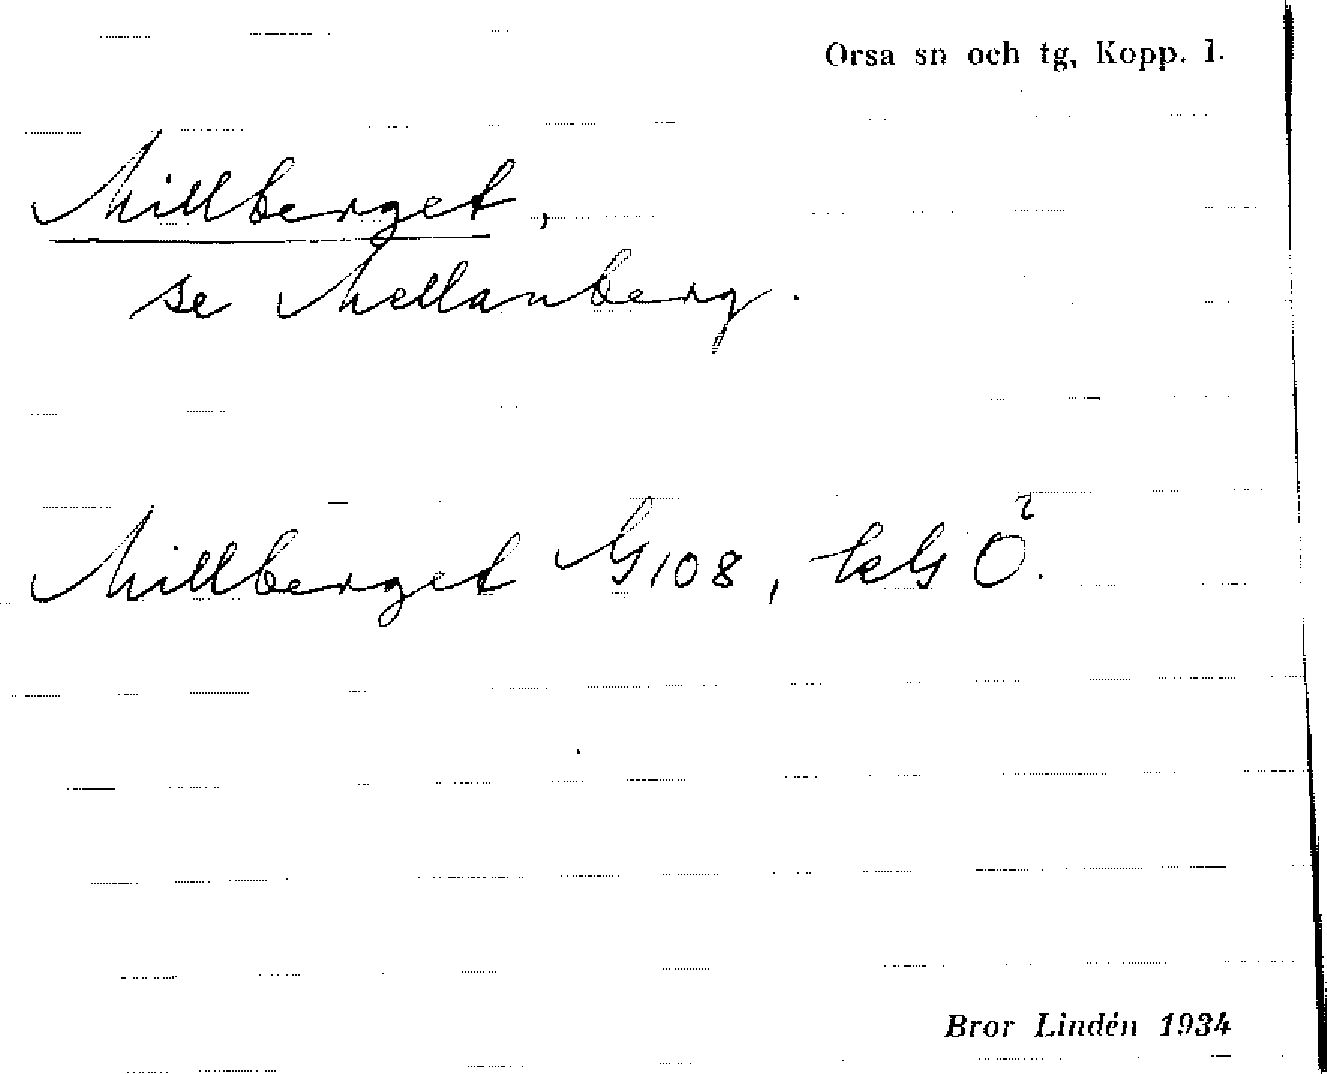 Orsa sn och tg, Kopp. l.
Millberget,
se Mellanberg.
Millberget G108,
Bror Lindén 1934